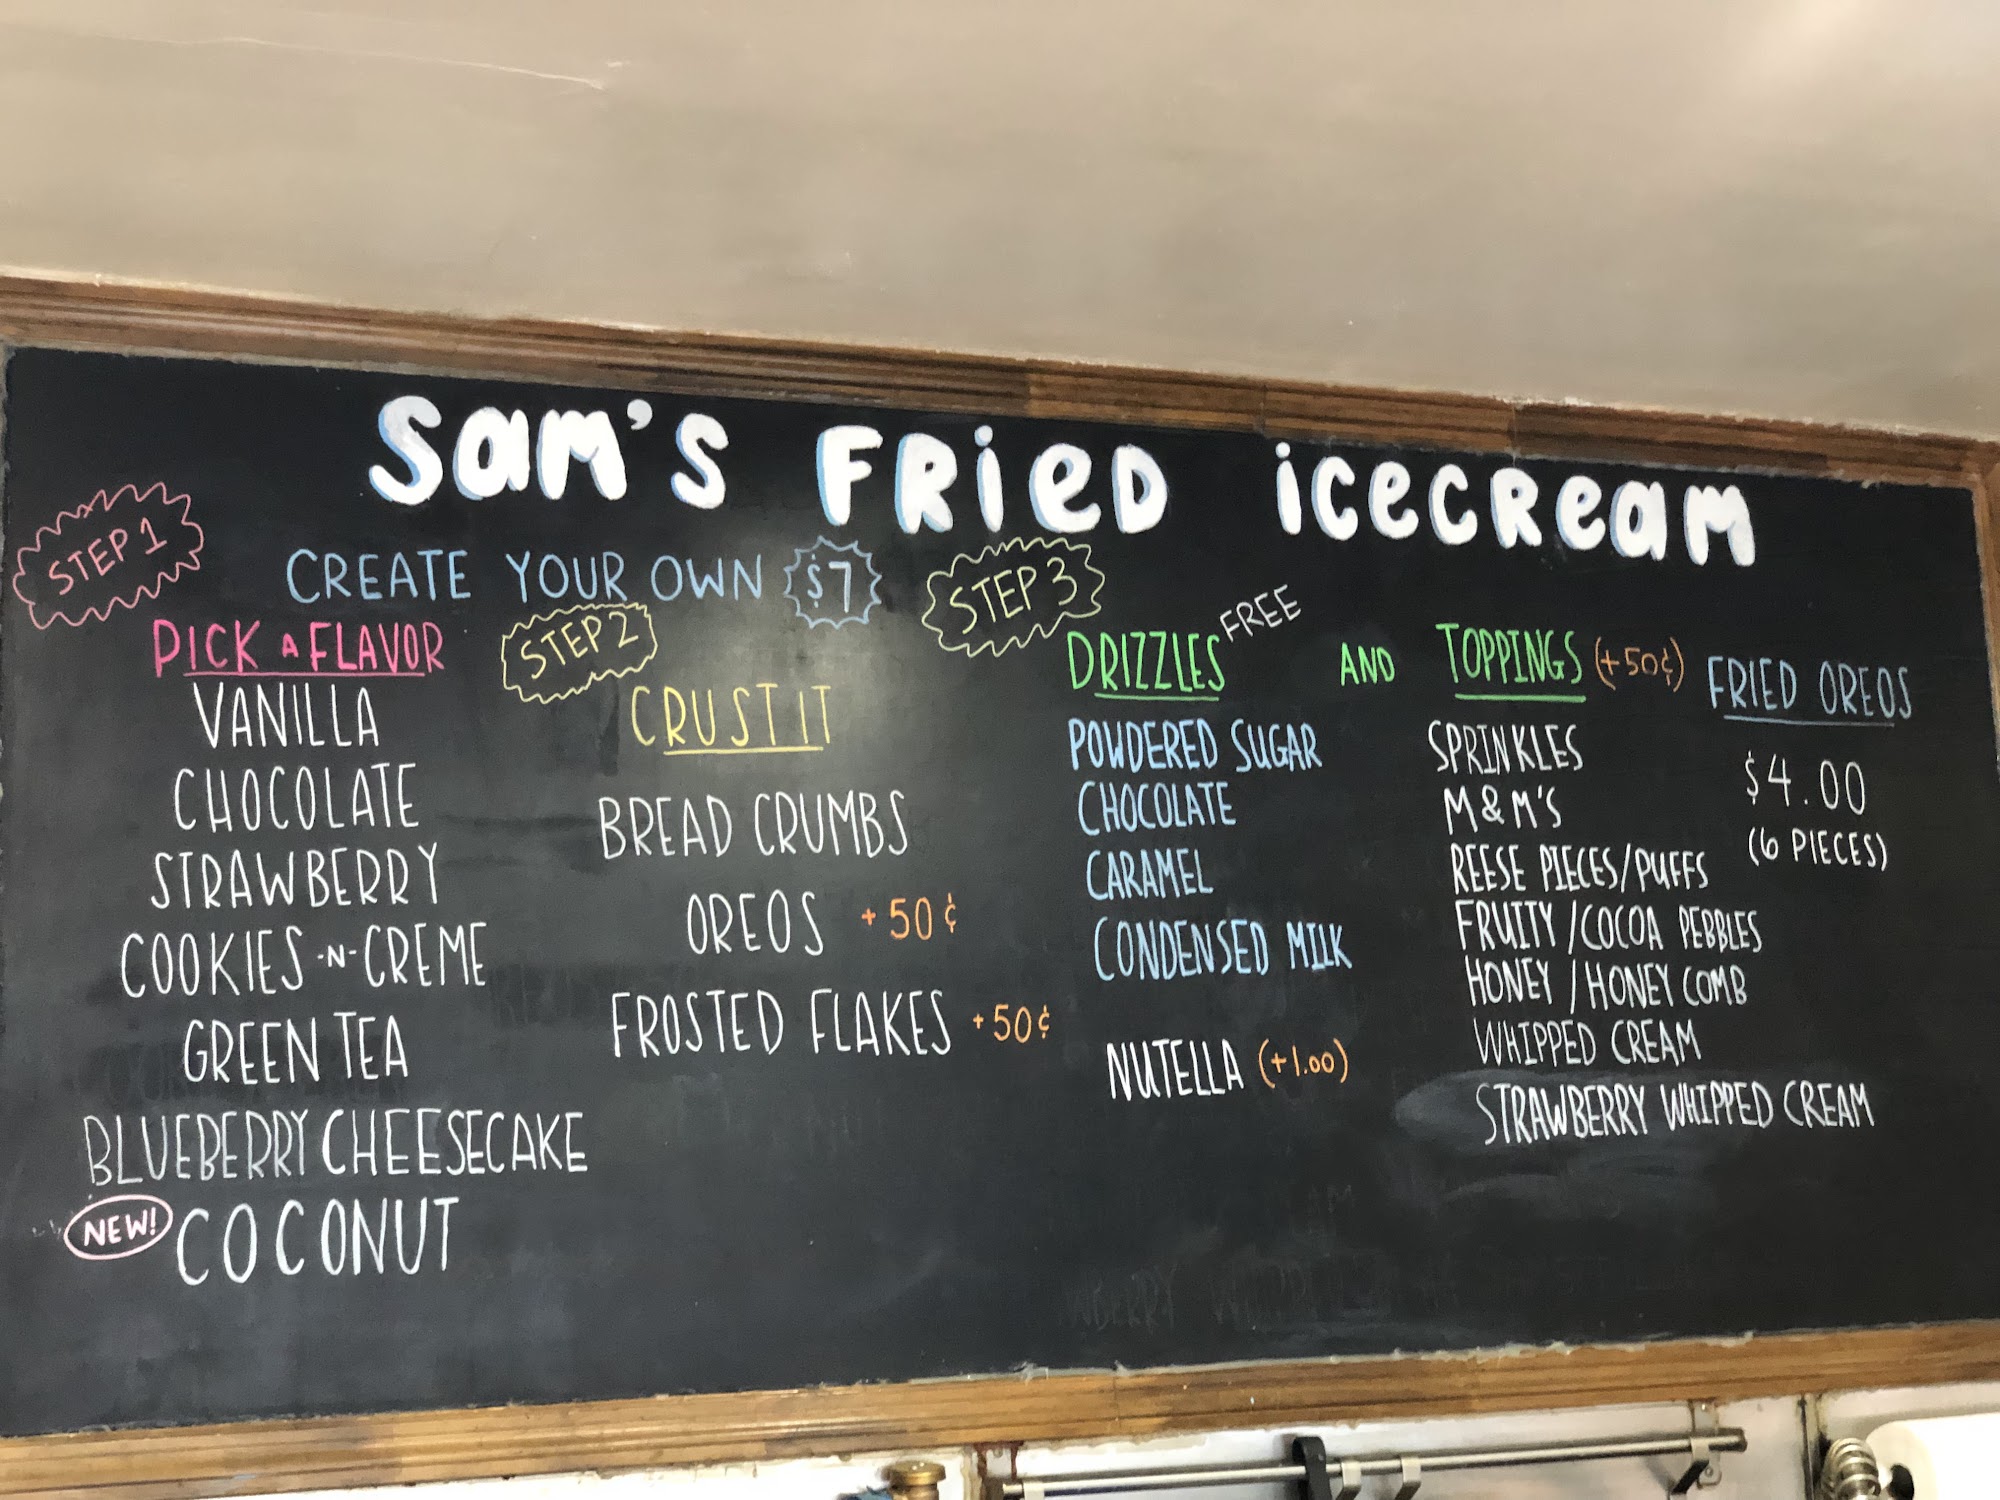 Sam's FRieD icecReam
STEP 1
CREATE YOUR OWN $7
PICK A FLAVOR
VANILLA
CHOCOLATE
STRAWBERRY
COOKIES -N- CREME
GREEN TEA
BLUEBERRY CHEESECAKE
NEW! COCONUT
STEP 2
CRUST IT
BREAD CRUMBS
OREOS +50¢
FROSTED FLAKES +50¢
STEP 3
DRIZZLES FREE AND TOPPINGS (+50¢)
POWDERED SUGAR
CHOCOLATE
CARAMEL
CONDENSED MILK
NUTELLA (+1.00)
SPRINKLES
M&M'S
REESE PIECES/PUFFS
FRUITY/COCOA PEBBLES
HONEY/HONEY COMB
WHIPPED CREAM
STRAWBERRY WHIPPED CREAM
FRIED OREOS
$4.00
(6 PIECES)